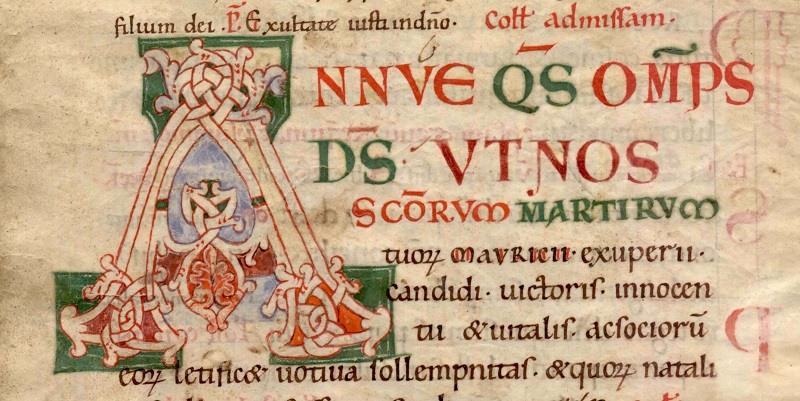 filium dei. P̄. Exultate iusti indn̄o. Coll̄ ad missam.
ANNVE Q̄S OM̄PS
D̄S VT NOS
SCŌRVM MARTIRVM
tuoꝝ MAVRICII · exuperii ·
candidi · uictoris · innocen
tii & uitalis · ac sociorū
eoꝝ letific& uotiua sollempnitas · & quoꝝ natali